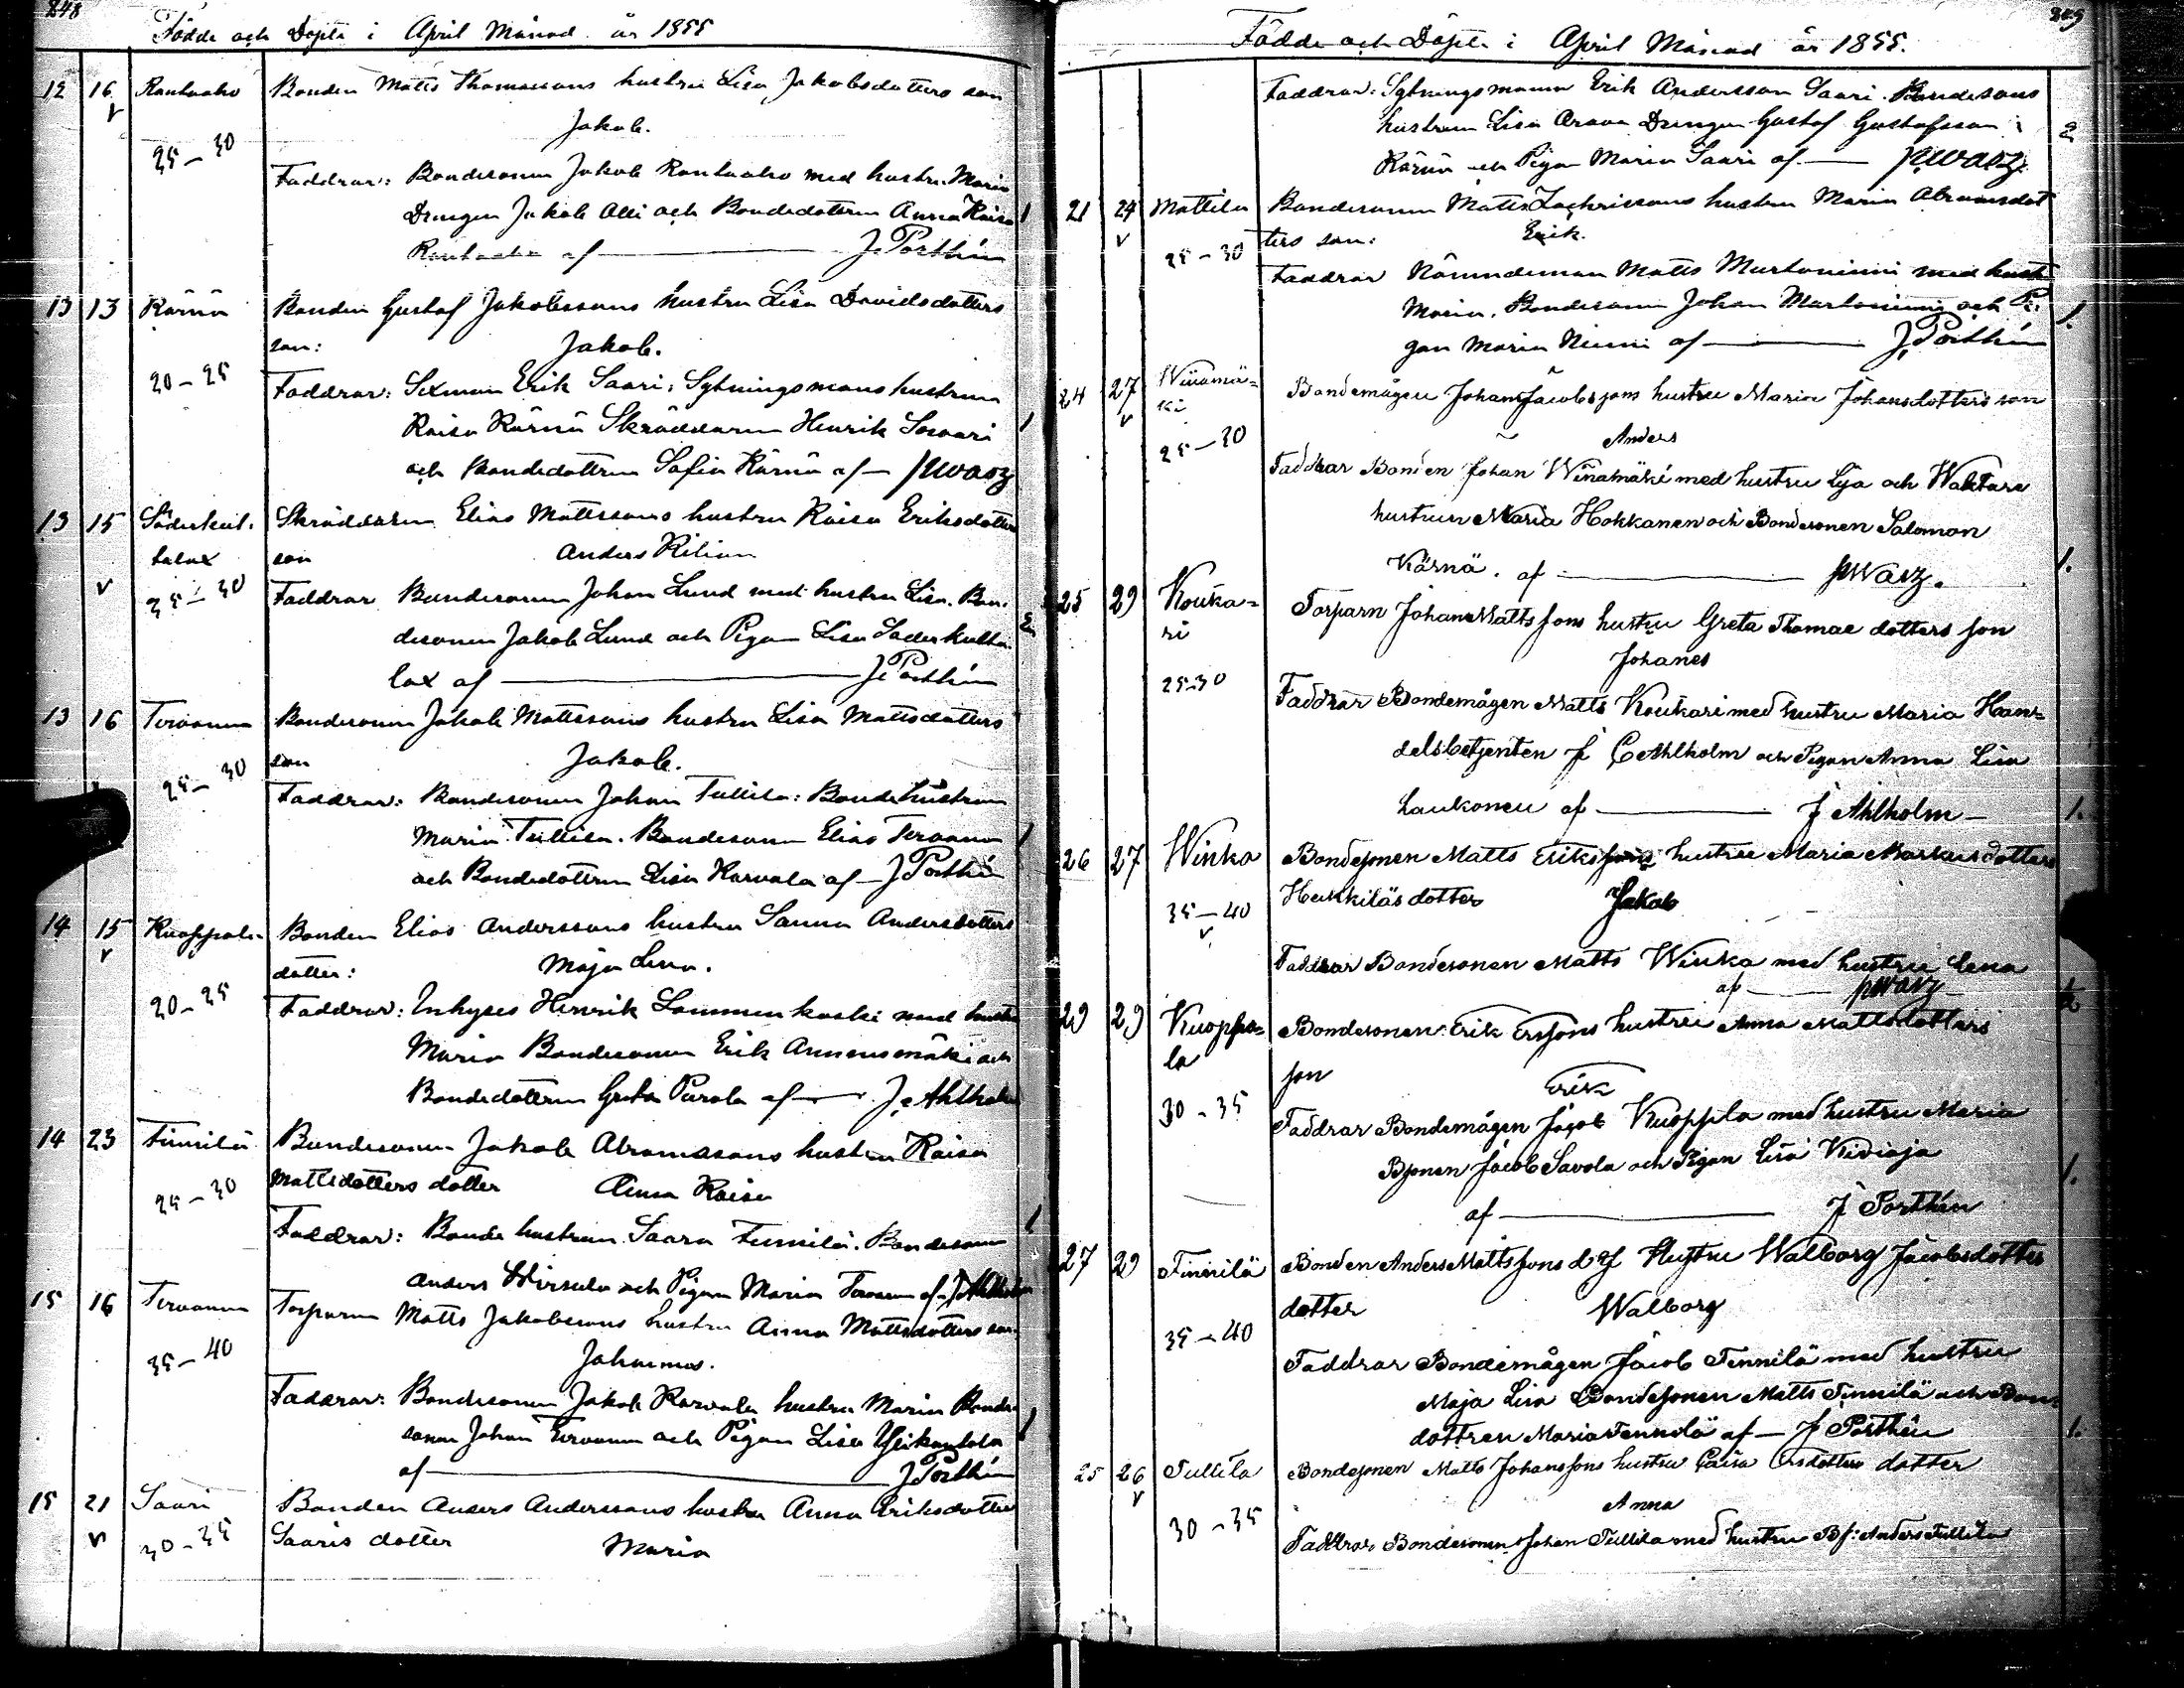 248
Födde och Döpte i April Månad år 1855
12 16 Rantaaho Bonden Matts Thomassons hustru Lisa Jakobsdotters son
v
Jakob.
25-30
Faddrar: Bondesonen Jakob Rantaaho med hustru Maria
Drengen Jakob Alli och Bondedottren Anna Kaisa 1
Rantaaho af J. Porthén
13 13 Kärnä Bonden Gustaf Jakobssons hustru Lisa Davidsdotters
son: Jakob.
20-25
Faddrar: Sexman Erik Saari, Sytningsmans hustrun
Kaisa Kärnä Skräddaren Henrik Sorvari 1
och Bondedottren Sofia Kärnä af PWasz
13 15 Söderkul- Skräddaren Elias Mattssons hustru Kaisa Eriksdotters
lalax son Anders Kilian
v 25-30
Faddrar Bondesonen Johan Lund med hustru Lisa. Bon-
desonen Jakob Lund och Pigan Lisa Söderkulla- 2
lax af J. Porthén
13 16 Tervonen Bondesonen Jakob Mattssons hustru Lisa Mattsdotters
son Jakob.
25-30
Faddrar: Bondesonen Johan Tullila: Bondehustrun
Maria Tullila. Bondesonen Elias Tervonen 1
och Bondedottren Lisa Harvala af J Porthén
14 15 Kuoppala Bonden Elias Anderssons hustru Sanna Andersdotters
v
dotter: Maja Lena.
20-25
Faddrar: Inhyses Henrik Lammenkoski med hustru
Maria Bondesonen Erik Annensmäki och
Bondedottren Greta Purola af J. Ahlholm
14 23 Finnilä Bondesonen Jakob Abramssons hustru Kaisa
Mattsdotters dotter Anna Kaisa
25-30
Faddrar: Bonde hustrun Saara Finnilä. Bondesonen 1
Anders Hirsula och Pigan Maria Tervonen af J Ahlholm
15 16 Tervonen Torparen Matts Jakobssons hustru Anna Mattsdotters son
35-40
Johannes.
Faddrar: Bondesonen Jakob Karvala hustru Maria Bonde-
sonen Johan Tervonen och Pigan Lisa Ylikantola 1
af J Porthén
15 21 Saari Bonden Anders Anderssons hustru Anna Eriksdotter
v 30-35
Saaris dotter Maria
249
Födde och Döpte i April Månad år 1855.
Faddrar: Sytningsmann Erik Andersson Saari. Bondesons
hustrun Lisa Orava Drengen Gustaf Gustafsson i 2
Kärnä och Pigan Maria Saari af PWasz
21 24 Mattila Bondesonen Matts Zachrissons hustru Maria Abramsdot
v
ters son: Erik.
25-30
Faddrar Nämndeman Matts Murtoniemi med hustr
Maria. Bondesonen Johan Murtoniemi och Pi- 1.
gan Maria Niemi af J. Porthén
24 27 Wiitamä- Bondemågen Johan Jacobssons hustru Maria Johansdotters son
v
ki
25-30
Anders
Faddrar Bonden Johan Wiitamäki med hustru Lisa och Waktare
hustrun Maria Hokkanen och Bondesonen Salomon
Kärnä. af PWasz. 1.
25 29 Kouka- Torparn Johan Mattssons hustru Greta Thomae dotters son
ri
Johanes
25-30
Faddrar Bondemågen Matts Koukari med hustru Maria Han-
delsbetjenten J C Ahlholm och Pigan Anna Lisa
Laukonen af J Ahlholm 1.
26 27 Winka Bondesonen Matts Erikssons hustru Maria Markusdotters
Heikkiläs dotter Jakob
35-40
v
Faddrar Bondesonen Matts Winka med hustru Lena
af PWasz 2
29 29 Kuoppa- Bondesonen Erik Erssons hustru Anna Mattsdotters
la
son Erik
30-35
Faddrar Bondemågen Jacob Kuoppla med hustru Maria
Bsonen Jacob Savola och Pigan Lisa Kivioja 1.
af J Porthén
27 29 Finnilä Bonden Anders Mattssons d.y. Hustru Walborg Jacobsdotter
dotter Walborg
35-40
Faddrar Bondemågen Jacob Finnilä med hustru
Maja Lisa Bondesonen Matts Finnilä och Bon-
dottren Maria Finnilä af J Porthén 1.
25 26 Tullila Bondesonen Matts Johanssons hustru Caisa Ersdotters dotter
v
Anna
30-35
Faddrar Bondesonen Johan Tullila med hustru Bs: Anders Tullila